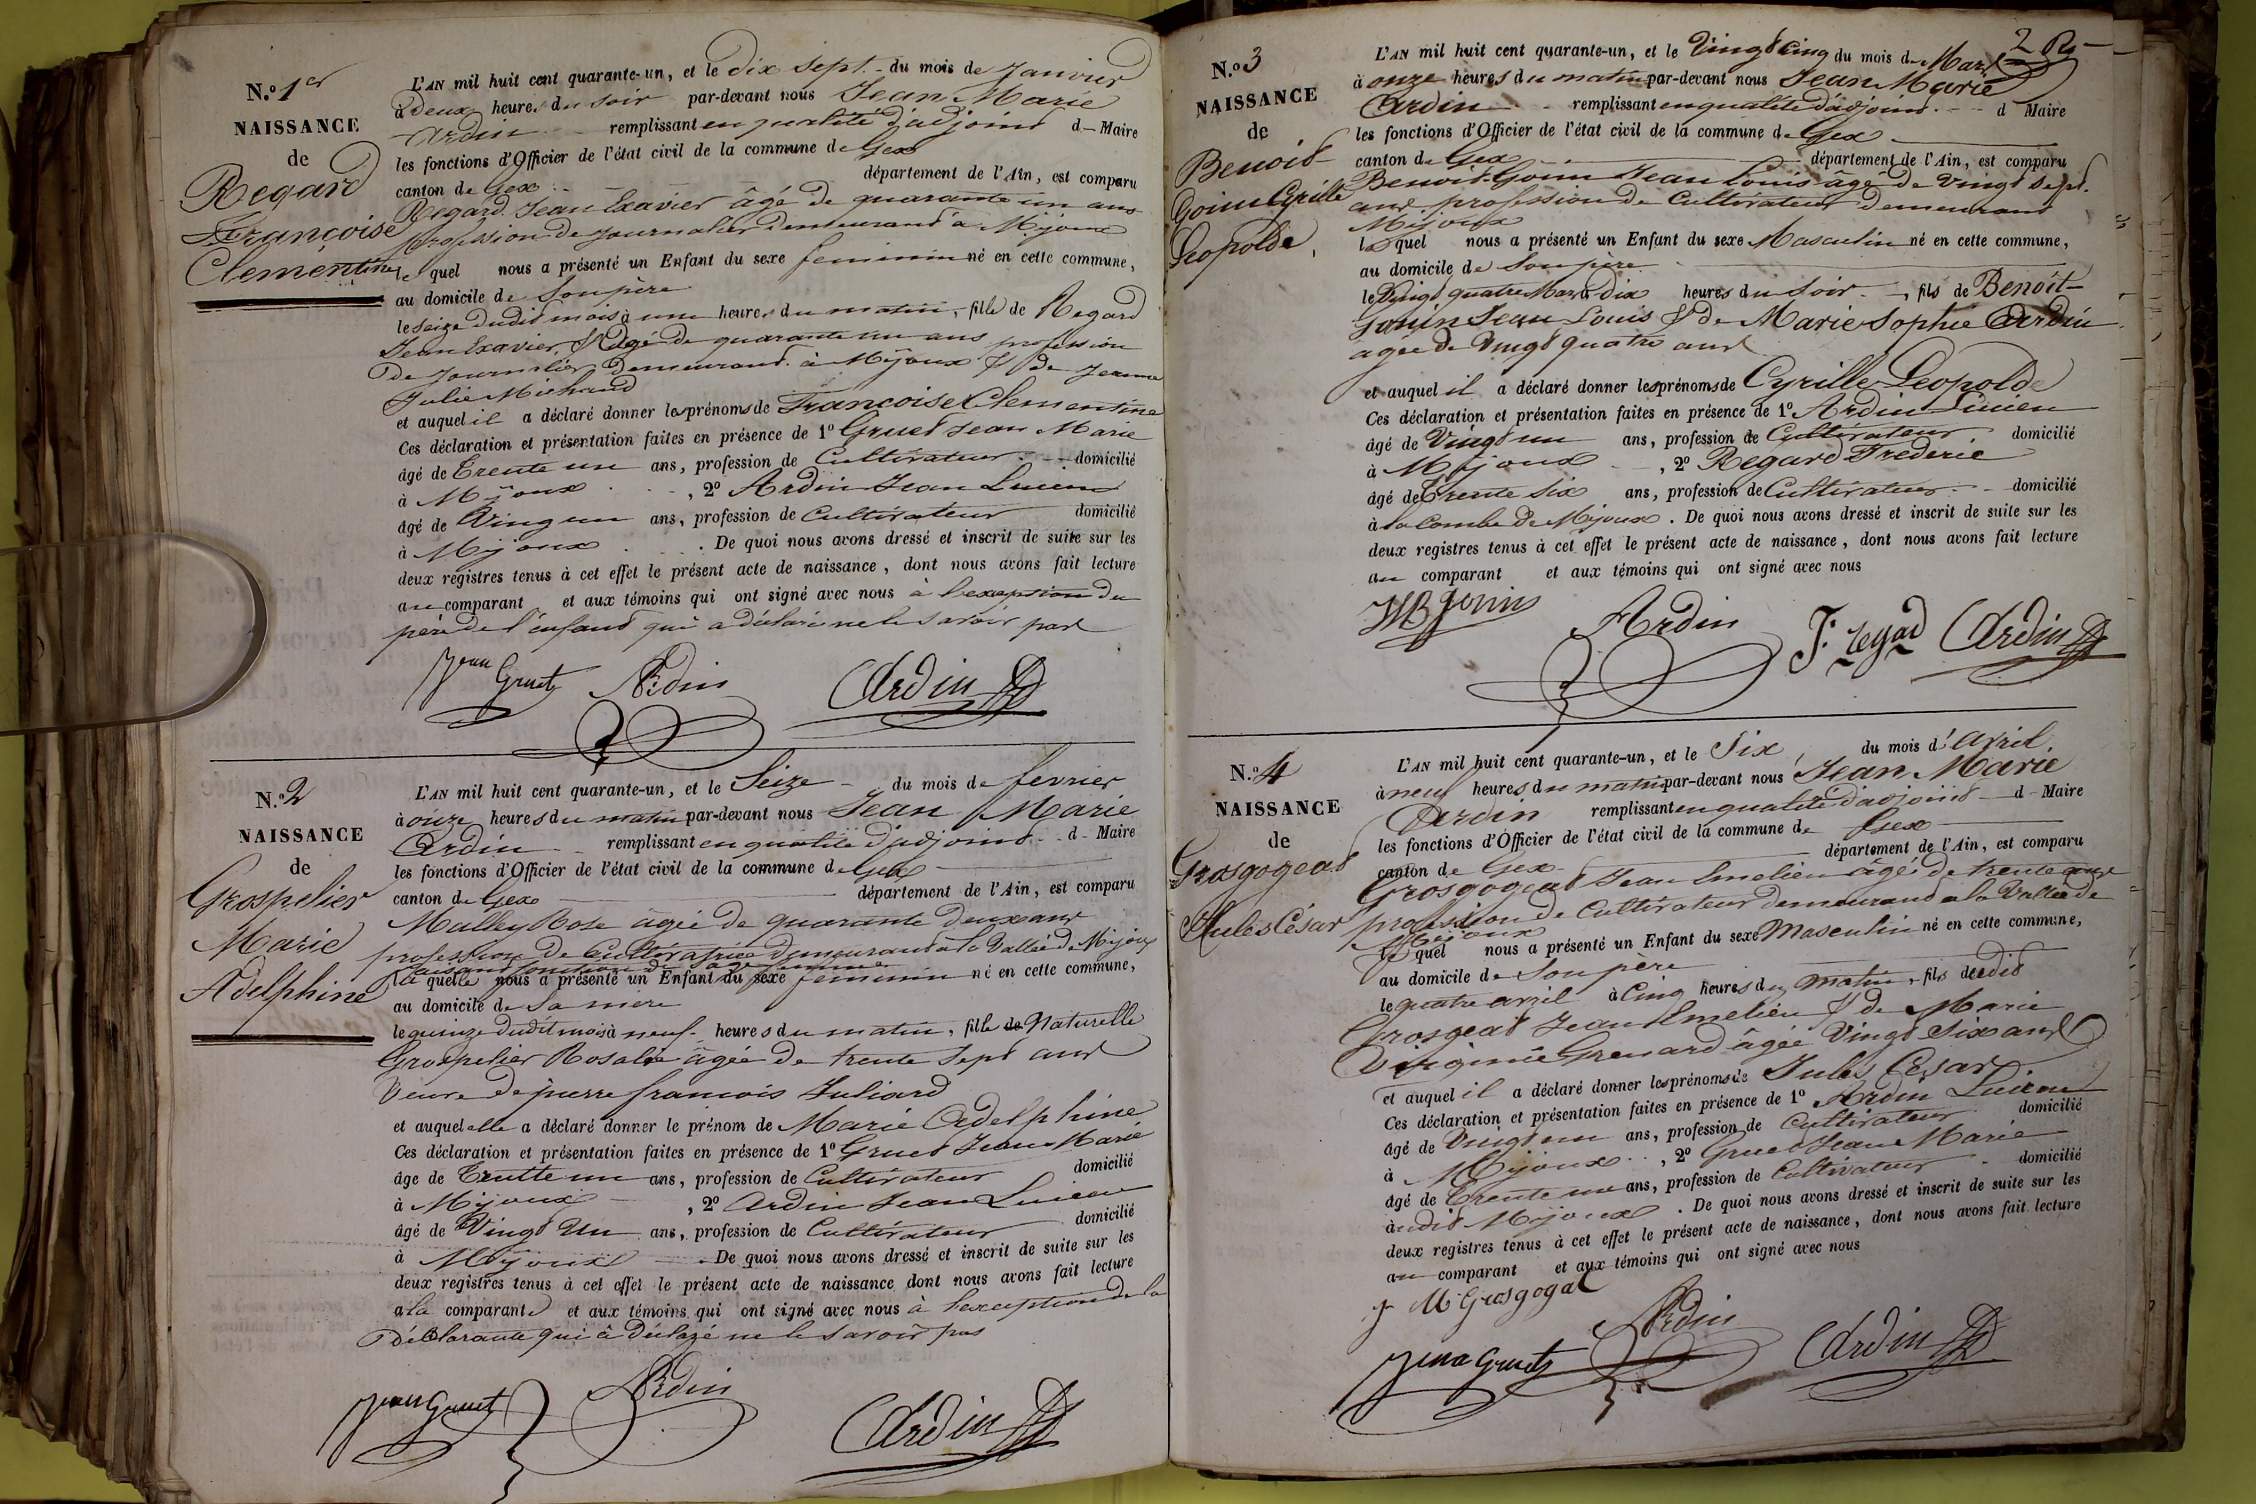 N.º 1er
NAISSANCE
de
Regard
Françoise
Clementine
L'AN mil huit cent quarante-un, et le dix sept du mois de Janvier
à deux heures du soir par-devant nous Jean Marie
Ardin remplissant en qualité d'adjoint d Maire
les fonctions d'Officier de l'état civil de la commune de Gex
canton de Gex département de l'Ain, est comparu
Regard Jean Exavier âgé de quarante un ans
profession de Journalier demeurant à Mijoux
le quel nous a présenté un Enfant du sexe feminin né en cette commune,
au domicile de son père
le seize dudit mois à une heures du matin, fille de Regard
Jean Exavier, âgé de quarante un ans profession
de Journalier demeurant à Mijoux & de Jeanne
Julie Michaud
et auquel il a déclaré donner les prénoms de Francoise Clementine
Ces déclaration et présentation faites en présence de 1º Gruet Jean Marie
âgé de Trente un ans, profession de Cultivateur domicilié
à Mijoux, 2º Ardin Jean Lucien
âgé de Vingt un ans, profession de Cultivateur domicilié
à Mijoux. De quoi nous avons dressé et inscrit de suite sur les
deux registres tenus à cet effet le présent acte de naissance, dont nous avons fait lecture
au comparant et aux témoins qui ont signé avec nous à l'exeption du
père de l'enfant qui a déclaré ne le savoir pas
Jean Gruet Ardin Ardin
N.º 2
NAISSANCE
de
Grospelier
Marie
Adelphine
L'AN mil huit cent quarante-un, et le Seize du mois de fevrier
à onze heures du matin par-devant nous Jean Marie
Ardin remplissant en qualité d'adjoint d Maire
les fonctions d'Officier de l'état civil de la commune de Gex
canton de Gex département de l'Ain, est comparu
Malley Rose âgée de quarante deux ans
profession de Cultivatrice demeurant à la Vallée de Mijoux
faisant fonction de sage femme
la quelle nous a présenté un Enfant du sexe feminin né en cette commune,
au domicile de sa mère
le quinze dudit mois à neuf heures du matin, fille de Naturelle
Grospelier Rosalie âgée de trente sept ans
Veuve de pierre francois Juliard
et auquel elle a déclaré donner le prénom de Marie Adelphine
Ces déclaration et présentation faites en présence de 1º Gruet Jean Marie
âge de Trente un ans, profession de Cultivateur domicilié
à Mijoux, 2º Ardin Jean Lucien
âgé de Vingt Un ans, profession de Cultivateur domicilié
à Mijoux. De quoi nous avons dressé et inscrit de suite sur les
deux registres tenus à cet effet le présent acte de naissance dont nous avons fait lecture
a la comparante et aux témoins qui ont signé avec nous à l'exception de la
déclarante qui à déclaré ne le savoir pas
Jean Gruet Ardin Ardin
2
N.º 3
NAISSANCE
de
Benoit
Gonin Cyrille
Leopolde
L'AN mil huit cent quarante-un, et le Vingt Cinq du mois de Mars
à onze heures du matin par-devant nous Jean Marie
Ardin remplissant en qualité d'adjoint d Maire
les fonctions d'Officier de l'état civil de la commune de Gex
canton de Gex département de l'Ain, est comparu
Benoit-Gonin Jean Louis âgé de Vingt sept
ans profession de Cultivateur demeurant
Mijoux
le quel nous a présenté un Enfant du sexe Masculin né en cette commune,
au domicile de son père
le Vingt quatre Mars à dix heures du soir, fils de Benoit-
Gonin Jean Louis & de Marie Sophie Ardin
agée de Vingt quatre ans
et auquel il a déclaré donner les prénoms de Cyrille Leopolde
Ces déclaration et présentation faites en présence de 1º Ardin Lucien
âgé de Vingt un ans, profession de Cultivateur domicilié
à Mijoux, 2º Regard Frederic
âgé de Trente Six ans, profession de Cultivateur domicilié
à la Combe de Mijoux. De quoi nous avons dressé et inscrit de suite sur les
deux registres tenus à cet effet le présent acte de naissance, dont nous avons fait lecture
au comparant et aux témoins qui ont signé avec nous
Gonin Ardin F. regad Ardin
N.º 4
NAISSANCE
de
Grosgogeat
Jules César
L'AN mil huit cent quarante-un, et le Six du mois d'avril
à neuf heures du matin par-devant nous Jean Marie
Ardin remplissant en qualité d'adjoint d Maire
les fonctions d'Officier de l'état civil de la commune de Gex
canton de Gex département de l'Ain, est comparu
Grosgogeat Jean Emelien âgé de trente
profession de Cultivateur demeurant a la Vallée de
Mijoux
le quel nous a présenté un Enfant du sexe Masculin né en cette commune,
au domicile de son père
le quatre avril à Cinq heures du matin, fils de dit
Grosgeat Jean Emelien & de Marie
Virginie Grenard âgée Vingt Six ans
et auquel il a déclaré donner les prénoms de Jules César
Ces déclaration et présentation faites en présence de 1º Ardin Lucien
âgé de Vingt un ans, profession de Cultivateur domicilié
à Mijoux, 2º Gruet Jean Marie
âgé de Trente un ans, profession de Cultivateur domicilié
audit Mijoux. De quoi nous avons dressé et inscrit de suite sur les
deux registres tenus à cet effet le présent acte de naissance, dont nous avons fait lecture
au comparant et aux témoins qui ont signé avec nous
Grosgogat
Ardin
Jean Gruet Ardin